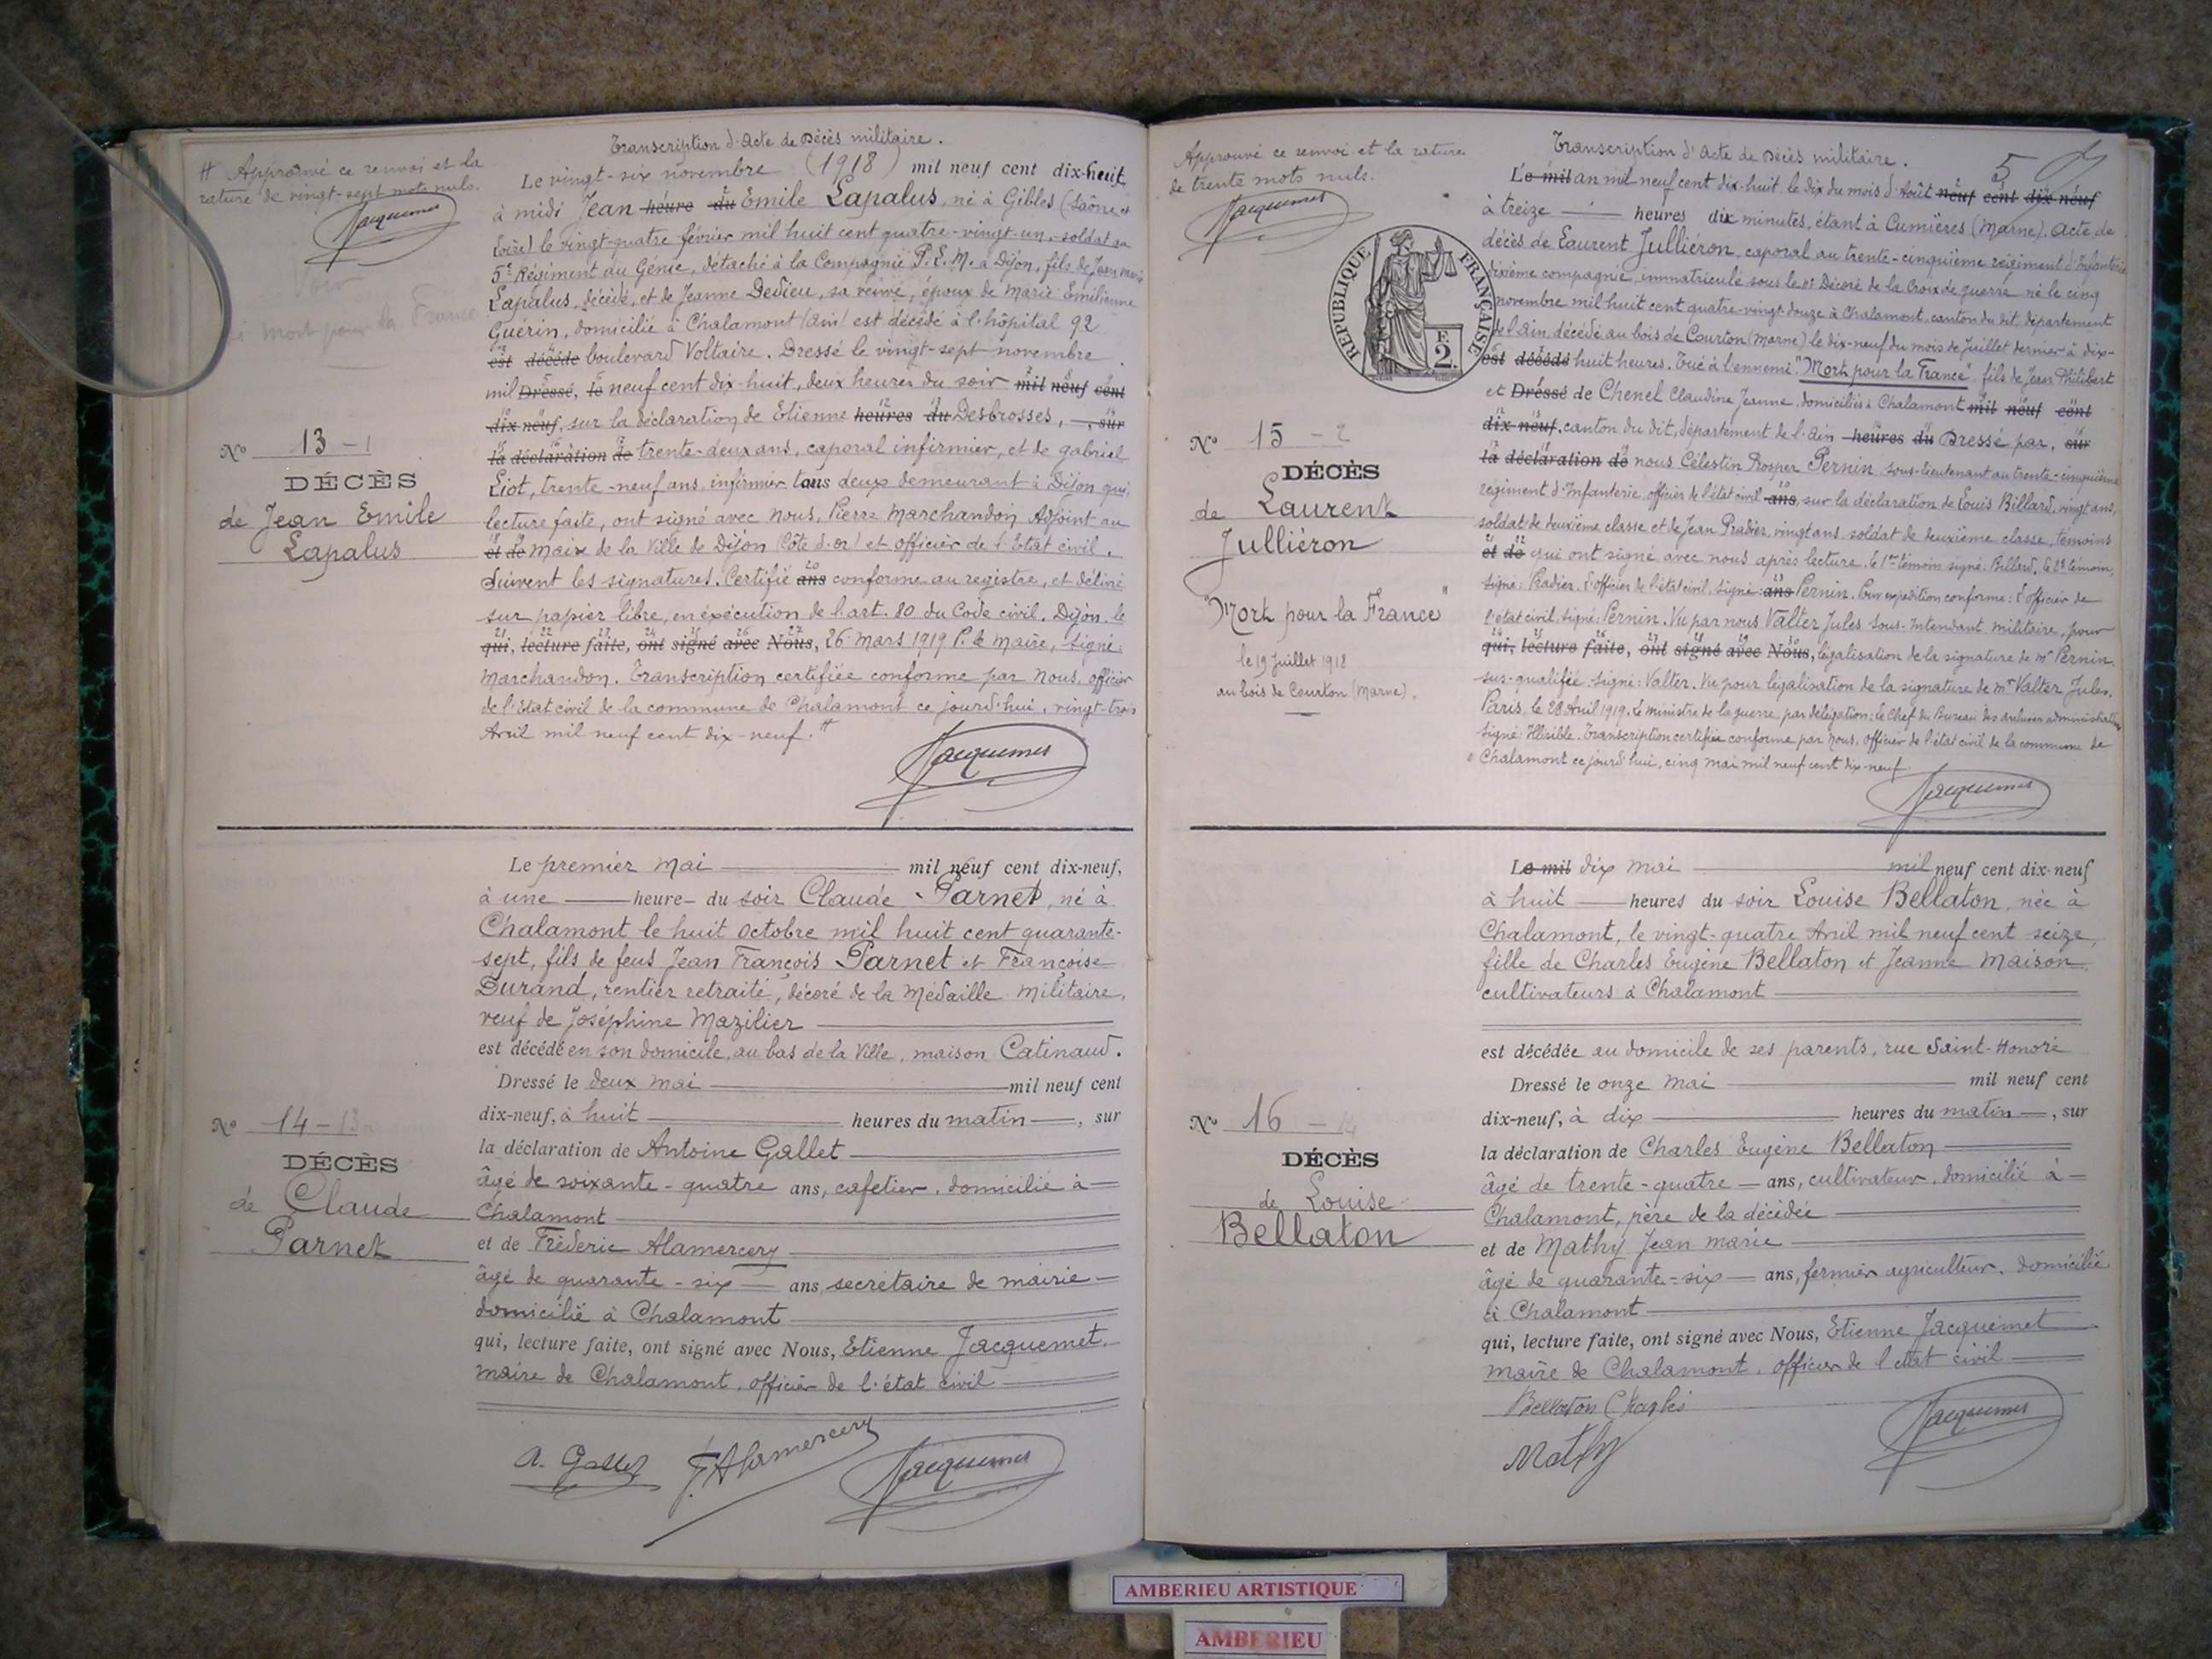 Transcription d'Acte de Décès militaire.
# Approuvé ce renvoi et la
rature de vingt-sept mots nuls.
Jacquemet
Voir
mort pour la France
N° 13 - 1
DÉCÈS
de Jean Emile
Lapalus
Le vingt-six novembre (1918) mil neuf cent dix-huit,
à midi Jean heure du Emile Lapalus, né à Gibles (Saône et
Loire) le vingt-quatre février mil huit cent quatre-vingt-un, soldat au
5e Régiment du Génie, détaché à la Compagnie P.L.M. à Dijon, fils de Jean Marie
Lapalus, décédé, et de Jeanne Dedieu, sa veuve, époux de Marie Emilienne
Guérin, domicilié à Chalamont (Ain) est décédé à l'hôpital 92
est décédé boulevard Voltaire. Dressé le vingt-sept novembre
mil Dressé, le neuf cent dix-huit, deux heures du soir mil neuf cent
dix-neuf, sur la déclaration de Etienne heures du Desbrosses, —, sur
la déclaration de trente-deux ans, caporal infirmier, et de gabriel
Liot, trente-neuf ans, infirmier tous deux demeurant à Dijon qui,
lecture faite, ont signé avec nous, Pierre Marchandon Adjoint au
et de maire de la Ville de Dijon (Côte d'or) et officier de l'Etat civil.
Suivent les signatures. Certifié ans conforme au registre, et délivré
sur papier libre, en exécution de l'art. 80 du Code civil. Dijon, le
qui, lecture faite, ont signé avec Nous, 26 Mars 1919 P. le Maire, signé:
Marchandon. Transcription certifiée conforme par Nous, officier
de l'Etat civil de la commune de Chalamont ce jourd'hui, vingt-trois
Avril mil neuf cent dix-neuf. #
Jacquemet
N° 14 - 13
DÉCÈS
de Claude
Parnet
Le premier mai mil neuf cent dix-neuf,
à une heure du soir Claude Parnet, né à
Chalamont le huit octobre mil huit cent quarante-
sept, fils de feus Jean François Parnet et Françoise
Durand, rentier retraité, décoré de la Médaille Militaire,
veuf de Joséphine Mazilier
est décédé en son domicile, au bas de la Ville, maison Catinaud.
Dressé le deux mai mil neuf cent
dix-neuf, à huit heures du matin, sur
la déclaration de Antoine Gallet
âgé de soixante-quatre ans, cafetier, domicilié à
Chalamont
et de Fréderic Alamercery
âgé de quarante-six ans, secrétaire de mairie
domicilié à Chalamont
qui, lecture faite, ont signé avec Nous, Etienne Jacquemet,
maire de Chalamont, officier de l'état civil
A. Gallet F. Alamercery Jacquemet
Transcription d'Acte de Décès militaire.
5
Approuvé ce renvoi et la rature
de trente mots nuls.
Jacquemet
REPUBLIQUE FRANÇAISE
F. 2.
N° 15 - 2
DÉCÈS
de Laurent
Julliéron
"Mort pour la France"
le 19 Juillet 1918
au bois de Courton (Marne).
Le mil an mil neuf cent dix-huit le dix du mois d'Août neuf cent dix neuf
à treize heures dix minutes, étant à Cumières (Marne). Acte de
décès de Laurent Julliéron, caporal au trente-cinquième régiment d'Infanterie
dixième compagnie, immatriculé sous le n° Décoré de la Croix de guerre né le cinq
novembre mil huit cent quatre-vingt-douze à Chalamont, canton du dit, département
de l'ain, décédé au bois de Courton (Marne) le dix-neuf du mois de Juillet dernier à dix-
est décédé huit heures. Tué à l'ennemi "Mort pour la France", fils de Jean Philibert
et Dressé de Chenel Claudine Jeanne, domiciliés à Chalamont mil neuf cent
dix-neuf, canton du dit, département de l'Ain heures du Dressé par, sur
la déclaration de nous Célestin Prosper Pernin sous-lieutenant au trente-cinquième
régiment d'Infanterie, officier de l'état civil ans, sur la déclaration de Louis Billard, vingt ans,
soldat de deuxième classe et de Jean Pradier, vingt ans, soldat de deuxième classe, témoins
et de qui ont signé avec nous après lecture. Le 1er témoin signé: Billard, le 2e témoin,
signé: Pradier. L'officier de l'état civil, signé: ans Pernin. Pour expédition conforme: l'officier de
l'état civil, signé: Pernin. Vu par nous Valter Jules Sous-Intendant militaire, pour
qui, lecture faite, ont signé avec Nous, légalisation de la signature de Mr Pernin,
sus-qualifié. Signé: Valter. Vu pour légalisation de la signature de Mr Valter Jules.
Paris, le 28 Avril 1919. Le Ministre de la guerre, par délégation: Le Chef du Bureau des archives administratives
signé: Illisible. Transcription certifiée conforme par Nous, officier de l'état civil de la commune de
Chalamont ce jourd'hui, cinq mai mil neuf cent dix-neuf.
Jacquemet
N° 16 - 14
DÉCÈS
de Louise
Bellaton
Le mil dix mai mil neuf cent dix-neuf
à huit heures du soir Louise Bellaton, née à
Chalamont, le vingt-quatre Avril mil neuf cent seize,
fille de Charles Eugène Bellaton et Jeanne Maison,
cultivateurs à Chalamont
est décédée au domicile de ses parents, rue Saint-Honoré
Dressé le onze mai mil neuf cent
dix-neuf, à dix heures du matin, sur
la déclaration de Charles Eugène Bellaton
âgé de trente-quatre ans, cultivateur, domicilié à
Chalamont, père de la décédée
et de Mathy Jean Marie
âgé de quarante-six ans, fermier agriculteur, domicilié
à Chalamont
qui, lecture faite, ont signé avec Nous, Etienne Jacquemet
maire de Chalamont, officier de l'état civil
Bellaton Charles
Mathy Jacquemet
AMBERIEU ARTISTIQUE
AMBERIEU